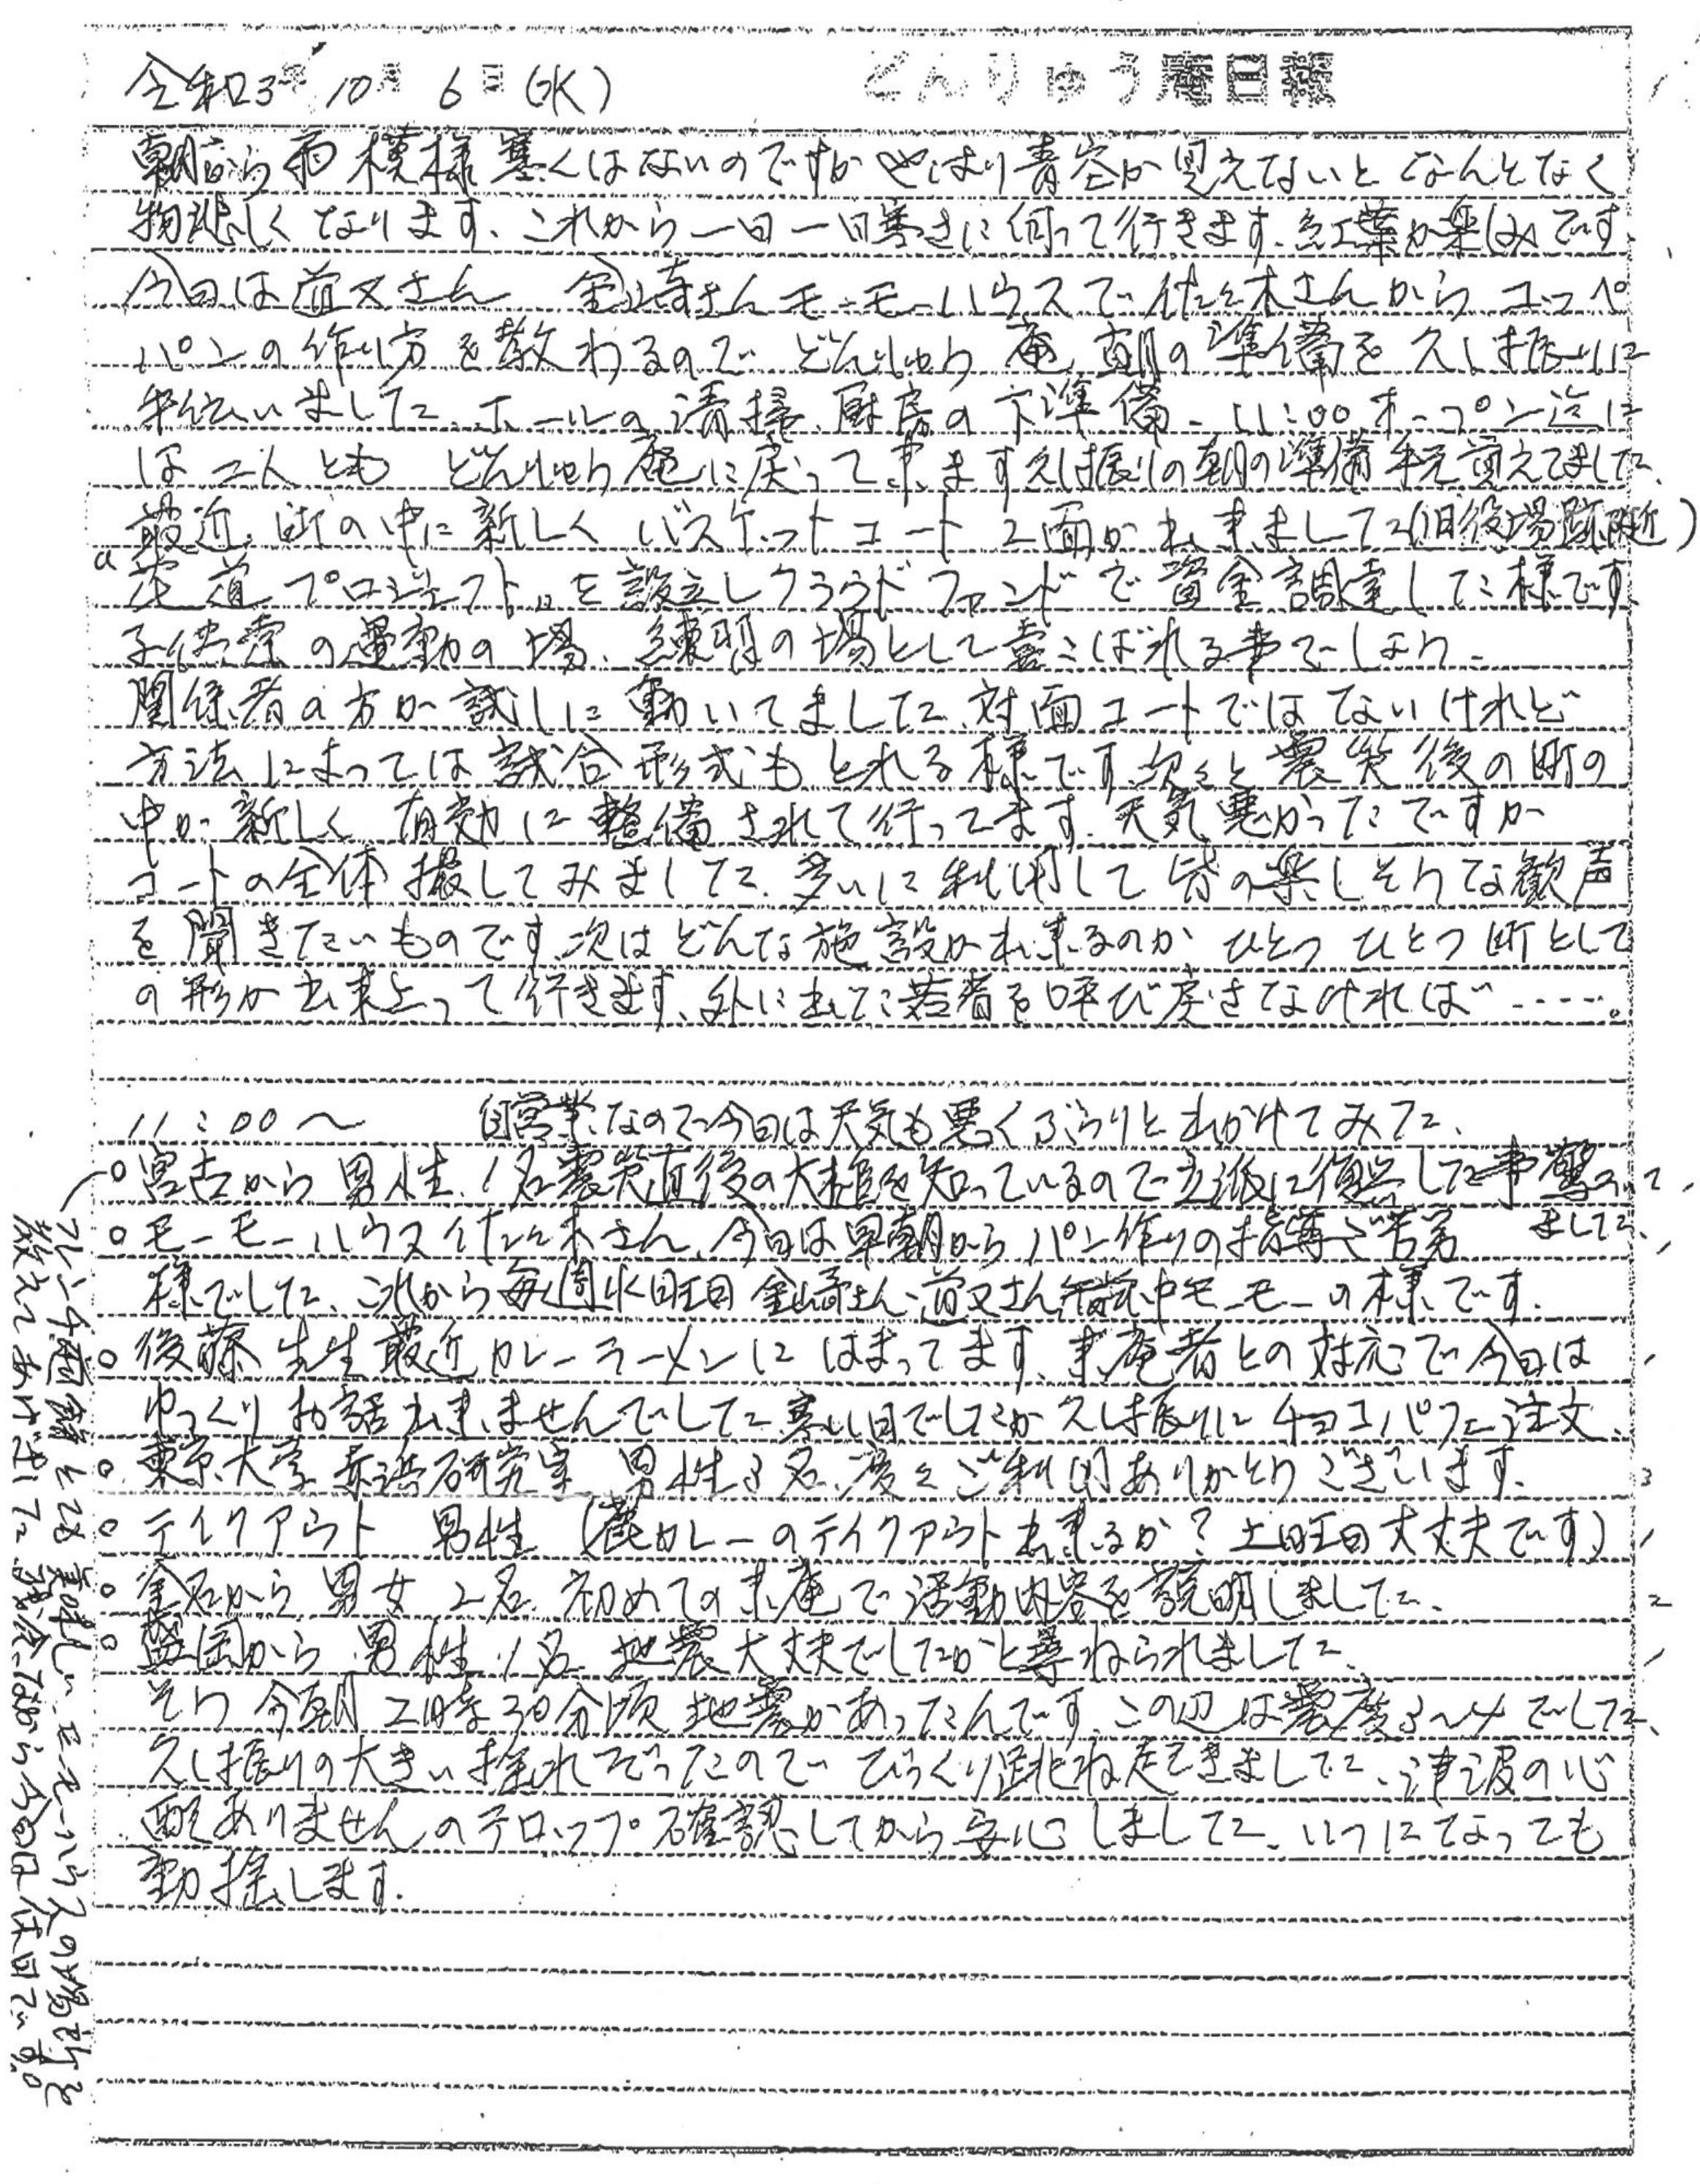 令和3年 10月 6日 (水) どんりゅう庵日報
朝から雨模様 寒くはないのですが やはり青空が見えないと なんとなく
物悲しくなります、これから一日一日寒さに向って行きます、紅葉が楽しみです、
今日は前又さん 金崎さん モーモーハウスで 佐々木さんから コッペ
パンの作り方を教わるので どんりゅう庵 朝の準備を 久し振りに
手伝いました、ホールの清掃、厨房の下準備、11:00オープン迄に
は二人とも どんりゅう庵に戻って来ます 久し振りの朝の準備 手元覚えてました、
最近、町の中に新しく バスケットコート 2面が出来ました(旧役場跡附近)
"花道プロジェクト"を設立しクラウドファンドで資金調達した様です、
子供達の運動の場、練習の場として喜こばれる事でしょう、
関係者の方が試しに動いてました、対面コートではないけれど
方法によっては試合形式もとれる様です、次々と震災後の町の
中が新しく 有効に整備されて行ってます、天気悪かったですが
コートの全体撮してみました、多いに利用して皆の楽しそうな歓声
を聞きたいものです、次はどんな施設が出来るのか ひとつ ひとつ町として
の形が出来上って行きます、外に出た若者を呼び戻さなければ……。
11:00〜 自営業なので今日は天気も悪くぶらりと出かけてみた、
○宮古から男性、1名 震災直後の大槌を知っているので立派に復興した事驚いて 1
ました、
○モーモーハウス佐々木さん、今日は早朝からパン作りの指導ご苦労 1
様でした、これから毎週水曜日 金崎さん、前又さん午前中モーモーの様です、
○後藤先生 最近カレーラーメンにはまってます、来庵者との対応で今日は 1
ゆっくりお話出来ませんでした 寒い日でしたが久し振りにチョコパフェ注文、
○東京大学 赤浜研究室 男性3名、度々ご利用ありがとうございます、 3
○テイクアウト 男性 (鹿カレーのテイクアウト出来るか? 土曜日大丈夫です) 1
○釜石から 男女 2名 初めての来庵で活動内容を説明しました、 2
○盛岡から 男性 1名 地震大丈夫でしたかと尋ねられました、 1
そう 今朝 2時30分頃 地震があったんです、この辺は震度3〜4でした、
久し振りの大きい揺れだったので びっくり跳ね起きました、津波の心
配ありませんのテロップ確認してから安心しました、いつになっても
動揺します、
モーモーハウスの場所を
教えてあげました 残念ながら今日は休日です。